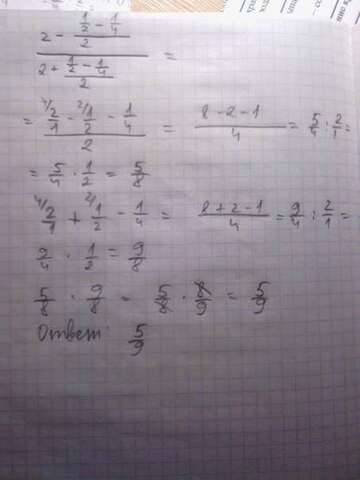 (2 - (1/2 - 1/4)/2) / (2 + (1/2 - 1/4)/2) =
= (⁴/2/1 - ²/1/2 - 1/4)/2 = (8 - 2 - 1)/4 = 5/4 : 2/1 =
= 5/4 · 1/2 = 5/8
⁴/2/1 + ²/1/2 - 1/4 = (8 + 2 - 1)/4 = 9/4 : 2/1 =
9/4 · 1/2 = 9/8
5/8 : 9/8 = 5/8 · 8/9 = 5/9
Ответ: 5/9